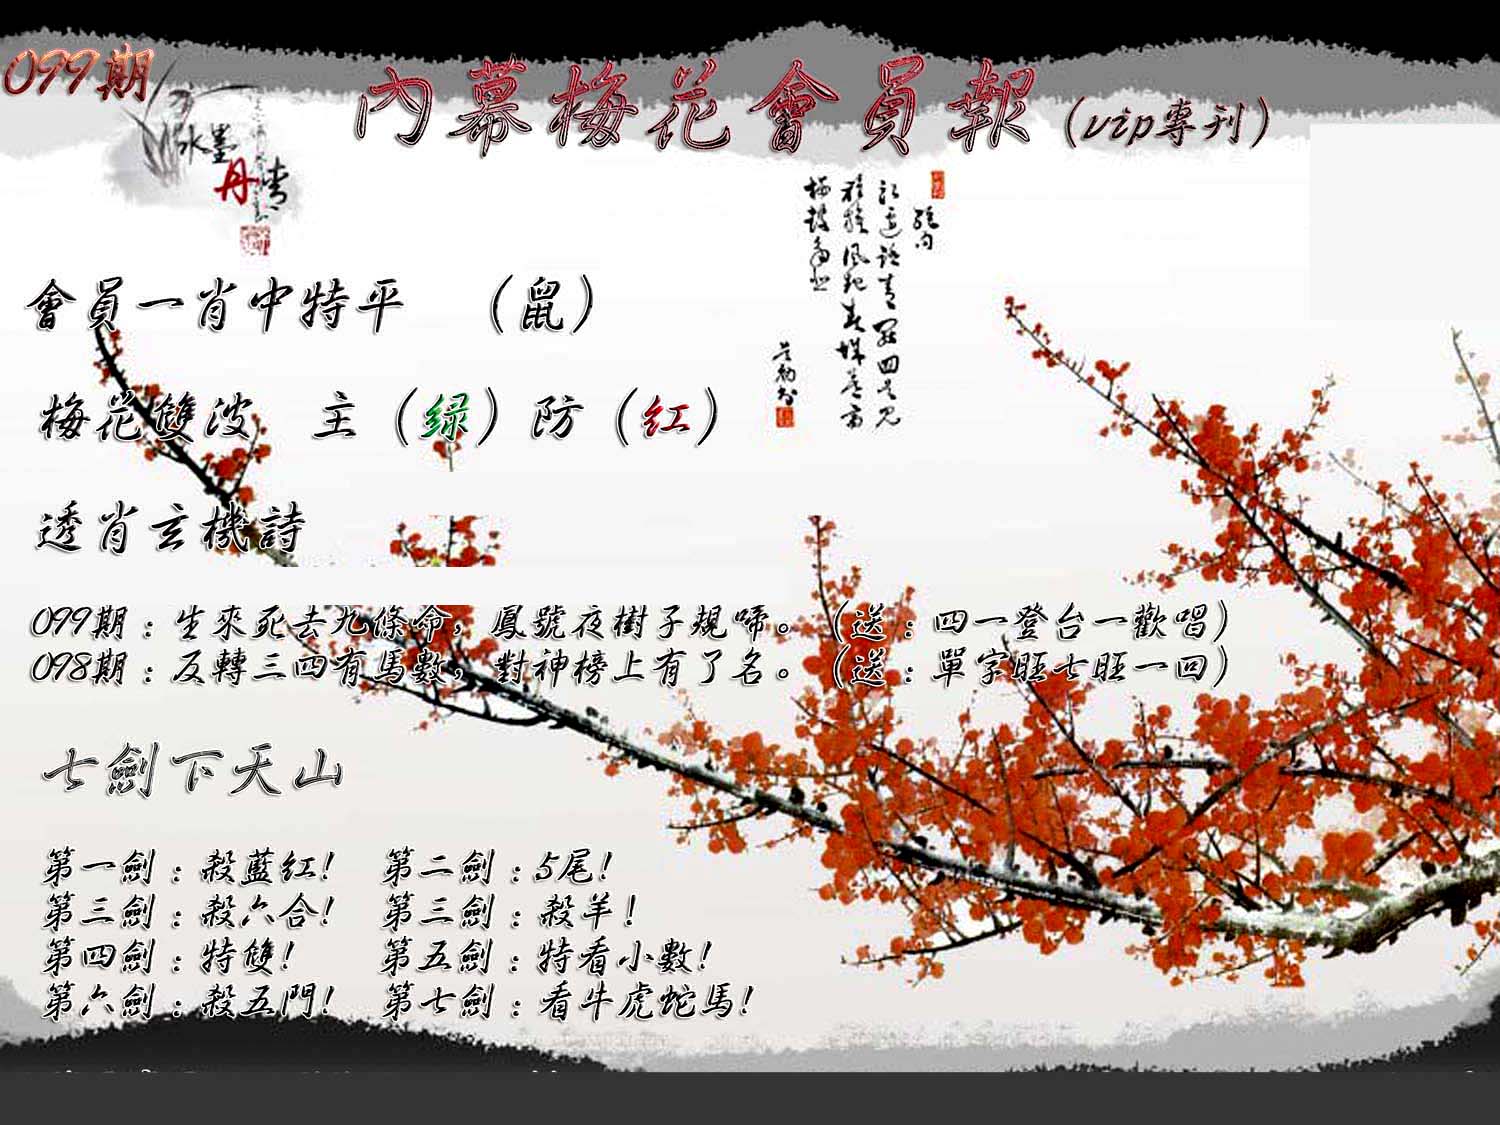 099期
內幕梅花會員報（vip專刊）
水墨
丹青
會員一肖中特平 （鼠）
梅花雙波 主（绿）防（红）
透肖玄機詩
099期：生來死去九條命，鳳號夜樹子規啼。（送：四一登台一歡唱）
098期：反轉三四有馬數，對神榜上有了名。（送：單字旺七旺一回）
七劍下天山
第一劍：殺藍紅！ 第二劍：5尾！
第三劍：殺六合！ 第三劍：殺羊！
第四劍：特雙！ 第五劍：特看小數！
第六劍：殺五門！ 第七劍：看牛虎蛇馬！